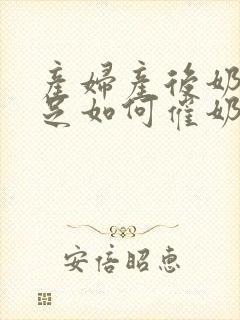 產婦產後奶
足如何催奶
安倍昭恵